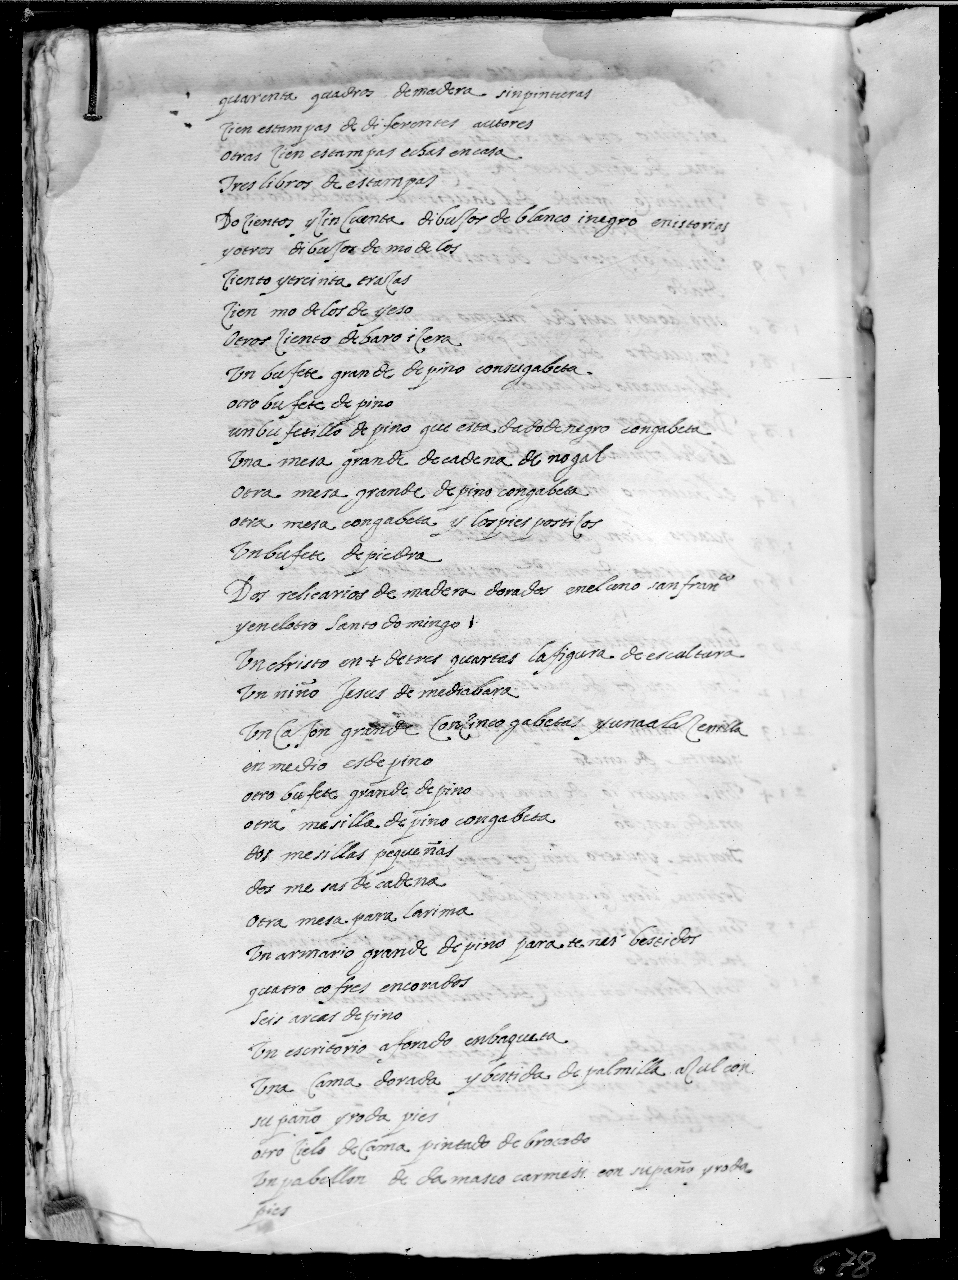 quarenta quadros de madera sin pinturas
cien estampas de diferentes autores
otras cien estampas echas en casa
Tres libros de estampas
Docientos y cincuenta dibujos de blanco i negro en istorias
y otros dibujos de modelos
ciento y treinta trazas
cien modelos de yeso
otros ciento de baro i cera
Un bufete grande de pino con su gabeta
otro bufete de pino
un bufetillo de pino que esta dado de negro con gabeta
Una mesa grande de cadena de nogal
otra mesa grande de pino con gabeta
otra mesa con gabeta y los pies postiços
Un bufete de piedra
Dos relicarios de madera dorados en el uno san fran^co
y en el otro santo domingo
Un christo en + de tres quartas la figura de escultura
Un niño Jesus de media bara
Un cajon grande con cinco gabetas y una alacenilla
en medio es de pino
otro bufete grande de pino
otra mesilla de pino con gabeta
dos mesillas pequeñas
dos mesas de cadena
otra mesa para
Un armario grande de pino para tener bestidos
quatro cofres encorados
seis arcas de pino
Un escritorio aforado en baqueta
Una cama dorada y bestida de palmilla azul con
su paño y roda pies
otro cielo de cama pintado de brocado
Un pabellon de damasco carmesi con su paño y roda
pies
678